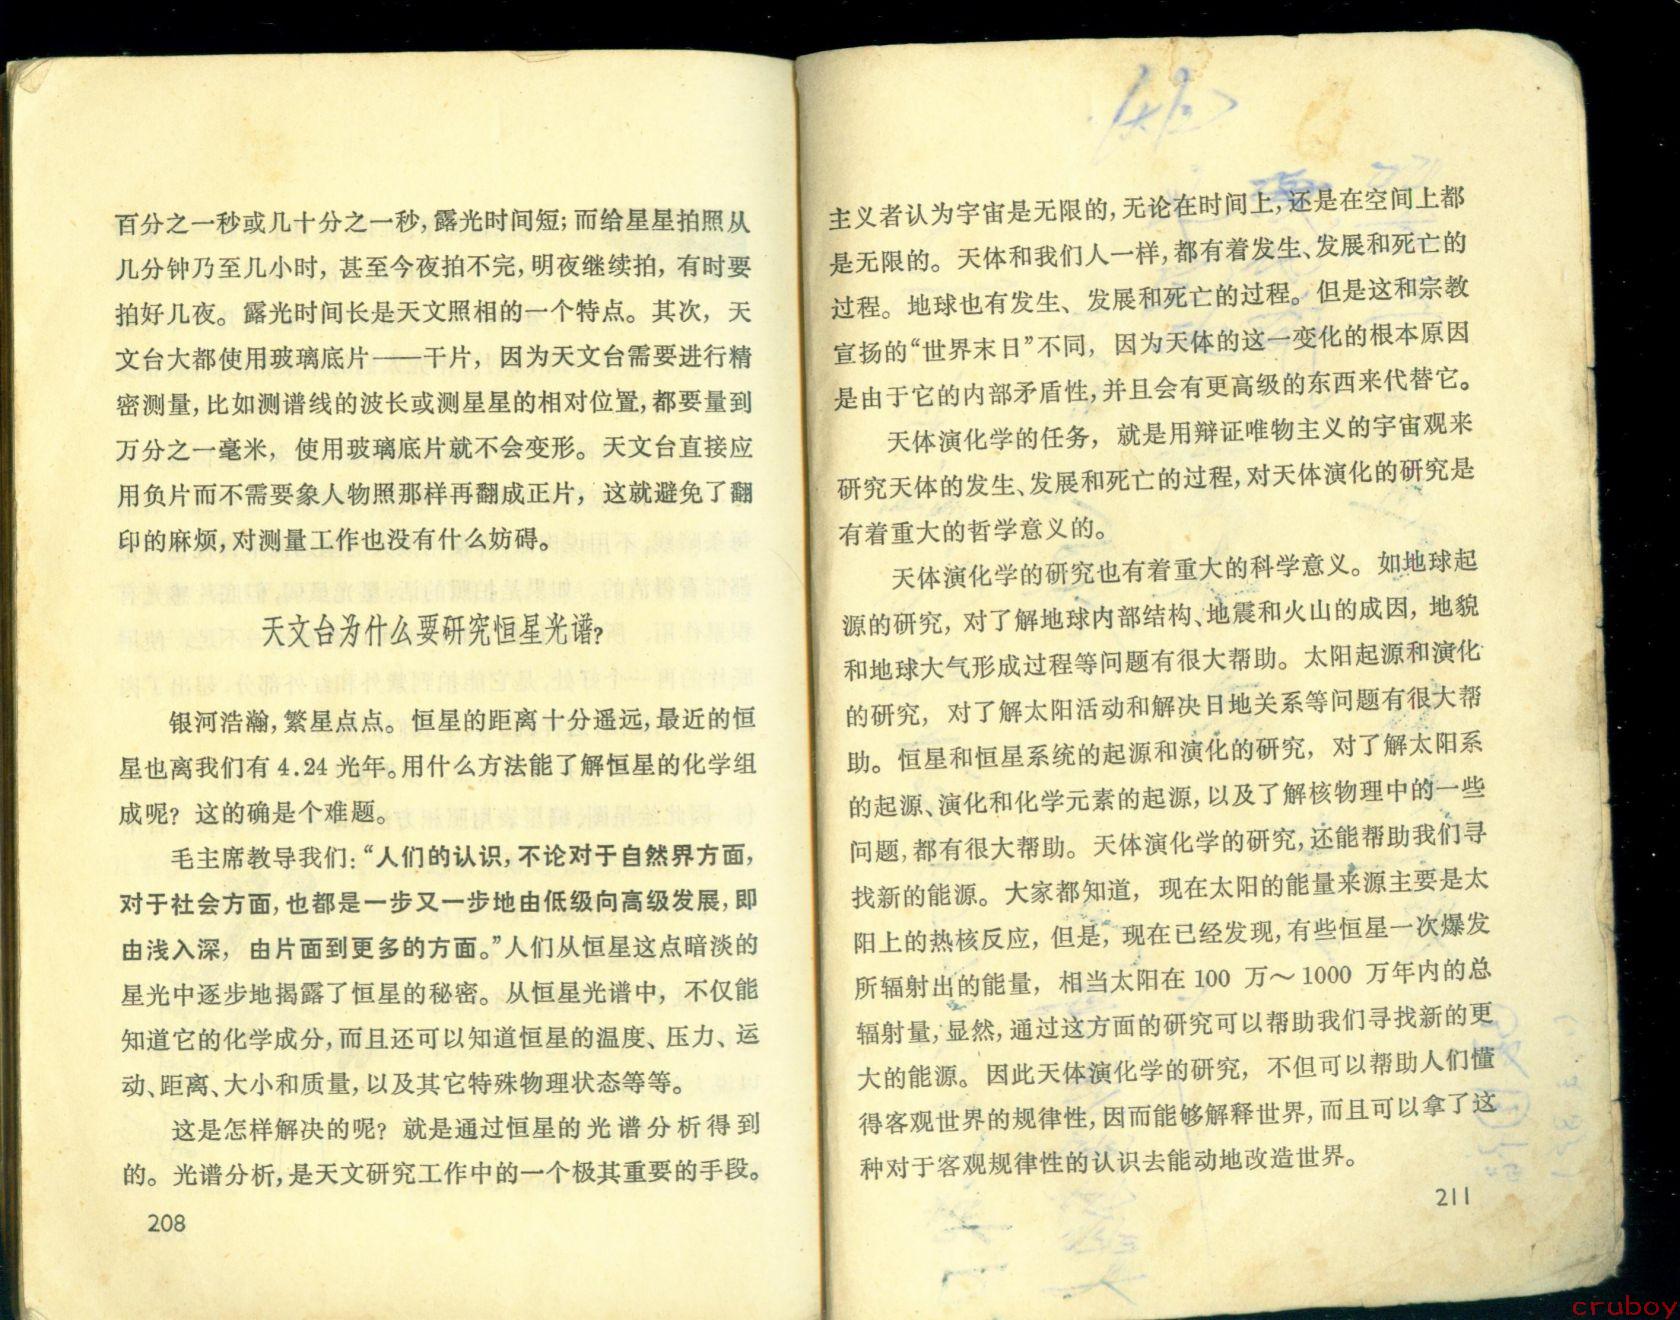 百分之一秒或几十分之一秒，露光时间短；而给星星拍照从
几分钟乃至几小时，甚至今夜拍不完，明夜继续拍，有时要
拍好几夜。露光时间长是天文照相的一个特点。其次，天
文台大都使用玻璃底片——干片，因为天文台需要进行精
密测量，比如测谱线的波长或测星星的相对位置，都要量到
万分之一毫米，使用玻璃底片就不会变形。天文台直接应
用负片而不需要象人物照那样再翻成正片，这就避免了翻
印的麻烦，对测量工作也没有什么妨碍。
天文台为什么要研究恒星光谱？
银河浩瀚，繁星点点。恒星的距离十分遥远，最近的恒
星也离我们有 4.24 光年。用什么方法能了解恒星的化学组
成呢？这的确是个难题。
毛主席教导我们：“人们的认识，不论对于自然界方面，
对于社会方面，也都是一步又一步地由低级向高级发展，即
由浅入深，由片面到更多的方面。”人们从恒星这点暗淡的
星光中逐步地揭露了恒星的秘密。从恒星光谱中，不仅能
知道它的化学成分，而且还可以知道恒星的温度、压力、运
动、距离、大小和质量，以及其它特殊物理状态等等。
这是怎样解决的呢？就是通过恒星的光谱分析得到
的。光谱分析，是天文研究工作中的一个极其重要的手段。
208
主义者认为宇宙是无限的，无论在时间上，还是在空间上都
是无限的。天体和我们人一样，都有着发生、发展和死亡的
过程。地球也有发生、发展和死亡的过程。但是这和宗教
宣扬的“世界末日”不同，因为天体的这一变化的根本原因
是由于它的内部矛盾性，并且会有更高级的东西来代替它。
天体演化学的任务，就是用辩证唯物主义的宇宙观来
研究天体的发生、发展和死亡的过程，对天体演化的研究是
有着重大的哲学意义的。
天体演化学的研究也有着重大的科学意义。如地球起
源的研究，对了解地球内部结构、地震和火山的成因，地貌
和地球大气形成过程等问题有很大帮助。太阳起源和演化
的研究，对了解太阳活动和解决日地关系等问题有很大帮
助。恒星和恒星系统的起源和演化的研究，对了解太阳系
的起源、演化和化学元素的起源，以及了解核物理中的一些
问题，都有很大帮助。天体演化学的研究，还能帮助我们寻
找新的能源。大家都知道，现在太阳的能量来源主要是太
阳上的热核反应，但是，现在已经发现，有些恒星一次爆发
所辐射出的能量，相当太阳在 100 万～1000 万年内的总
辐射量，显然，通过这方面的研究可以帮助我们寻找新的更
大的能源。因此天体演化学的研究，不但可以帮助人们懂
得客观世界的规律性，因而能够解释世界，而且可以拿了这
种对于客观规律性的认识去能动地改造世界。
211
cruboy